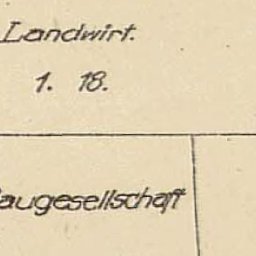 Landwirt.
1. 18.
augesellschaft